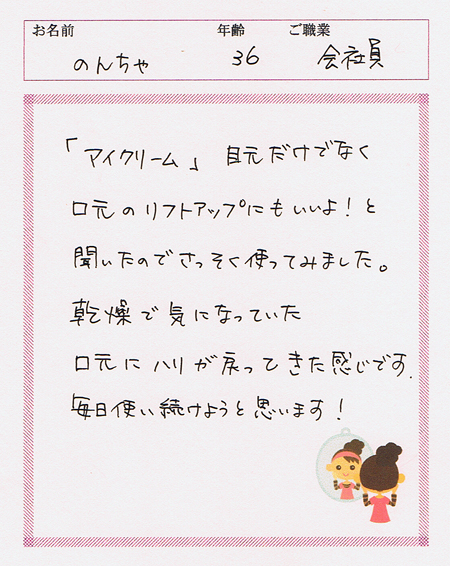 お名前 年齢 ご職業
のんちゃ 36 会社員
「アイクリーム」 目元だけでなく
口元のリフトアップにもいいよ！と
聞いたのでさっそく使ってみました。
乾燥で気になっていた
口元にハリが戻ってきた感じです.
毎日使い続けようと思います！